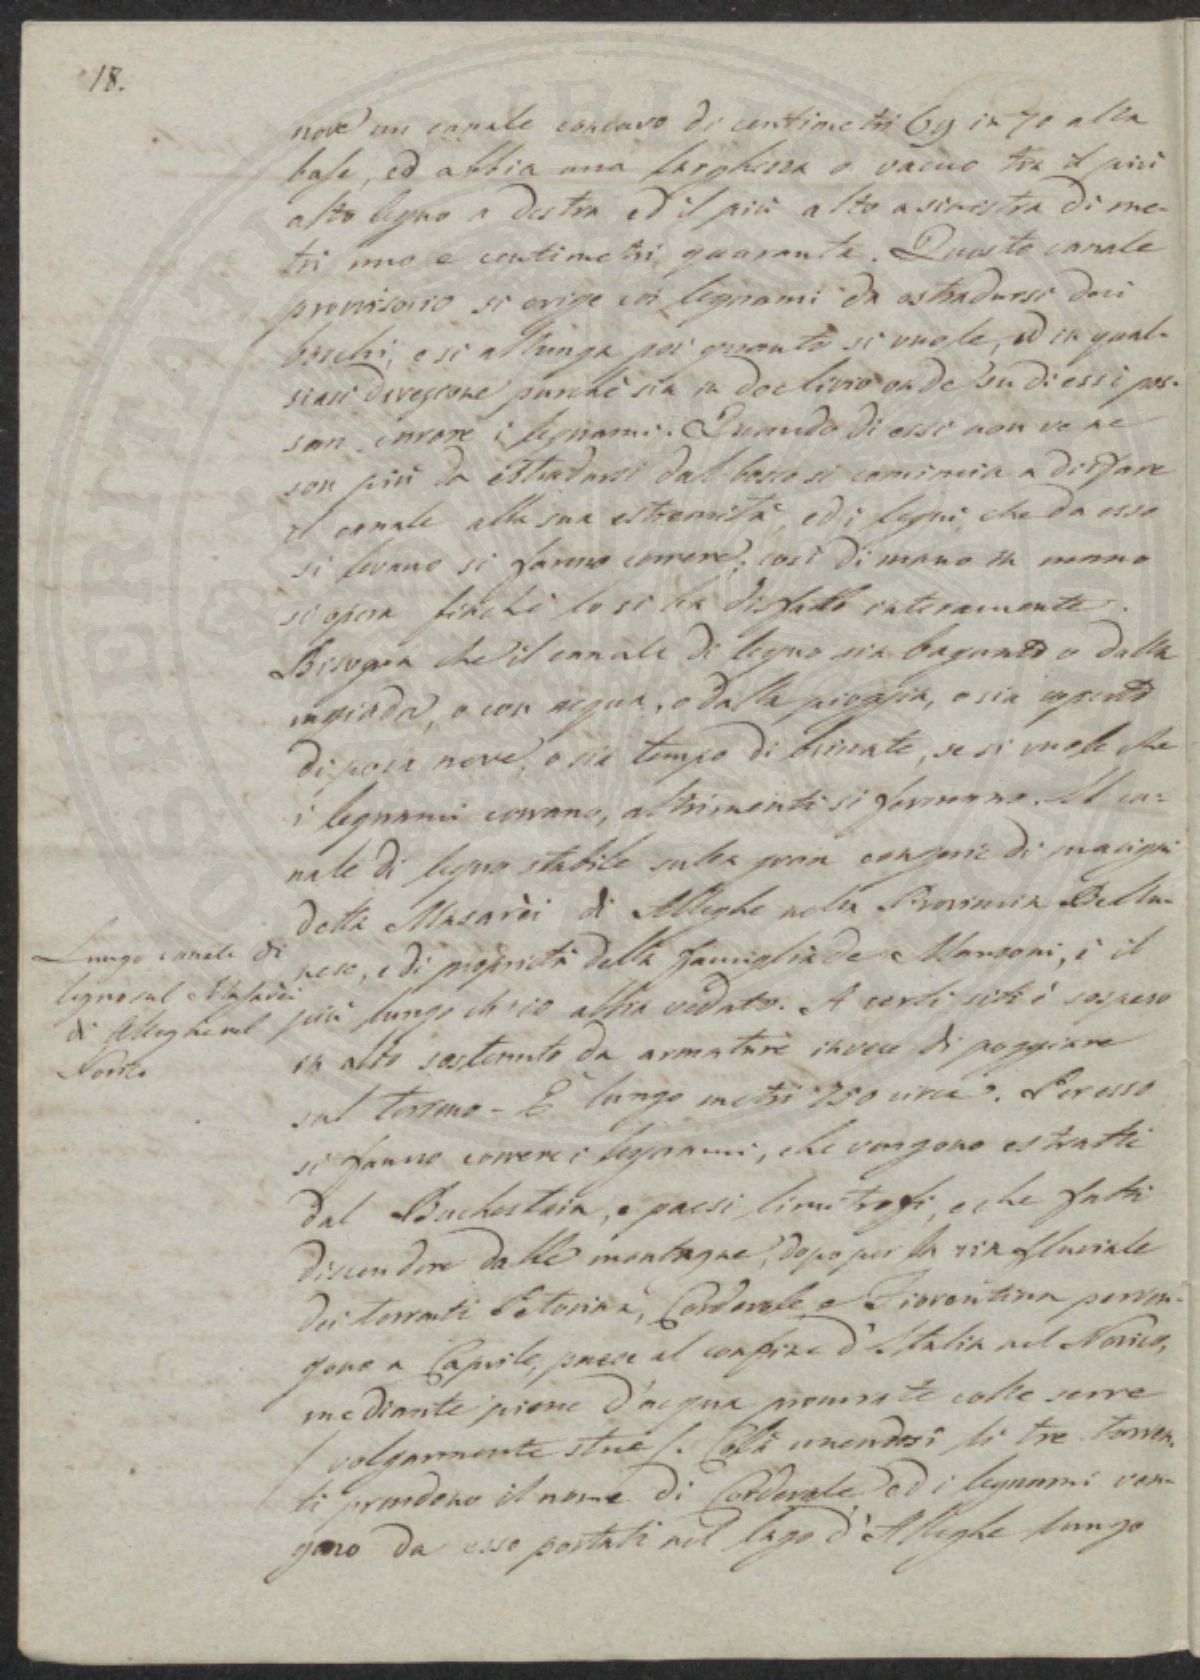 18.
nove un canale concavo di centimetri 69 in 70 alla
base, ed abbia una larghezza o vacuo tra il più
alto legno a destra ed il più alto a sinistra di me-
tri uno e centimetri quaranta. Questo canale
provvisorio si erige coi legnami da estradursi dai
boschi, e si allunga poi quanto si vuole, ed in qual-
siasi direzione purché sia in declivio onde su di essi pos-
san correre i legnami. Quando di essi non ve ne
son più da estradursi dal bosco si comincia a disfare
il canale alla sua estremità, ed i legni, che da esso
si levano si fanno correre; così di mano in mano
si opera finché lo si ha disfatto interamente.
Bisogna che il canale di legno sia bagnato o dalla
rugiada, o con acqua, o dalla pioggia, o sia coperto
di poca neve, o sia tempo di brinate, se si vuole che
i legnami corrano, altrimenti si fermano. Il ca-
nale di legno stabile sulla gran congerie di macigni
detta Masarèi di Alleghe nella Provincia Bellu-
nese, e di proprietà della famiglia de Manzoni, è il
più lungo ch'io abbia veduto. A certi siti è sospeso
in alto sostenuto da armature invece di poggiare
sul terreno - È lungo metri 750 circa. Per esso
si fanno correre i legnami, che vengono estratti
dal Buchestein, e paesi limitrofi, e che fatti
discendere dalle montagne, dopo per la via fluviale
dei torrenti Pettorina, Cordevole e Fiorentina perven-
gono a Caprile, paese al confine d'Italia nel Norico,
mediante piene d'acqua procurate colle serre
/ volgarmente stue /. Colà unendosi li tre torren-
ti prendono il nome di Cordevole, ed i legnami ven-
gono da esso portati nel lago d'Alleghe lungo
Lungo canale di
legno sul Masarèi
di Alleghe nel